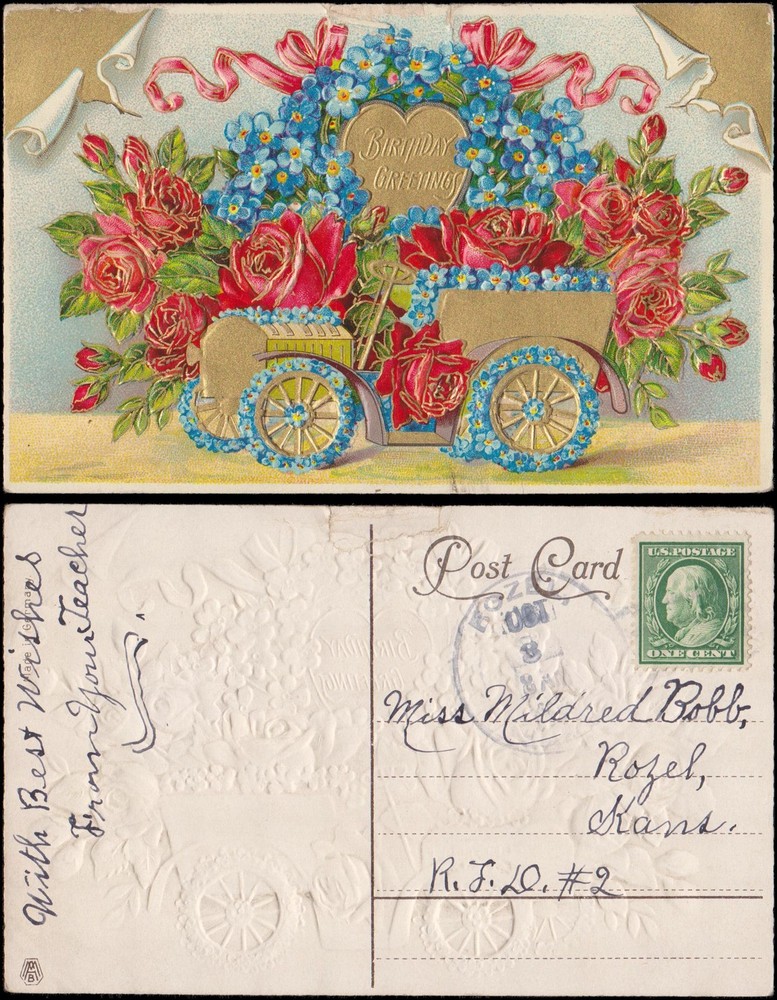 BIRTHDAY
GREETINGS
Post Card
U.S. POSTAGE
ONE CENT
ROZEL
OCT
3
Miss Mildred Bobb,
Rozel,
Kans.
R.F.D. #2
With Best Wishes
From Your Teacher